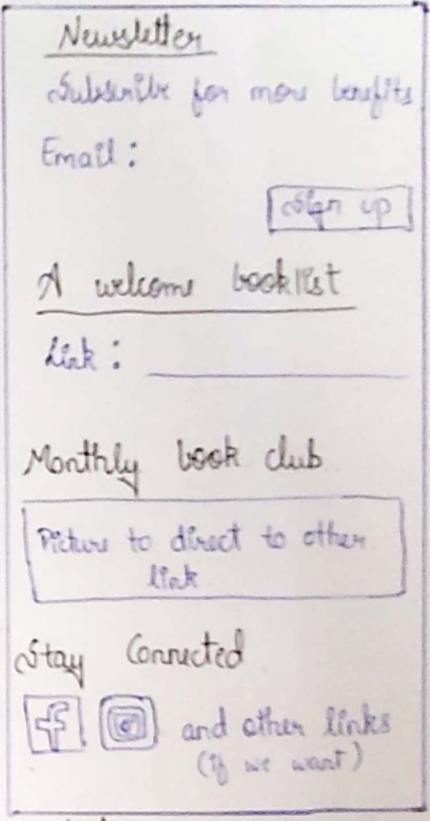 Newsletter
Subscribe for more benefits
Email :
Sign up
A welcome booklist
Link :
Monthly book club
Picture to direct to other
link
Stay Connected
f
and other links
(if we want)